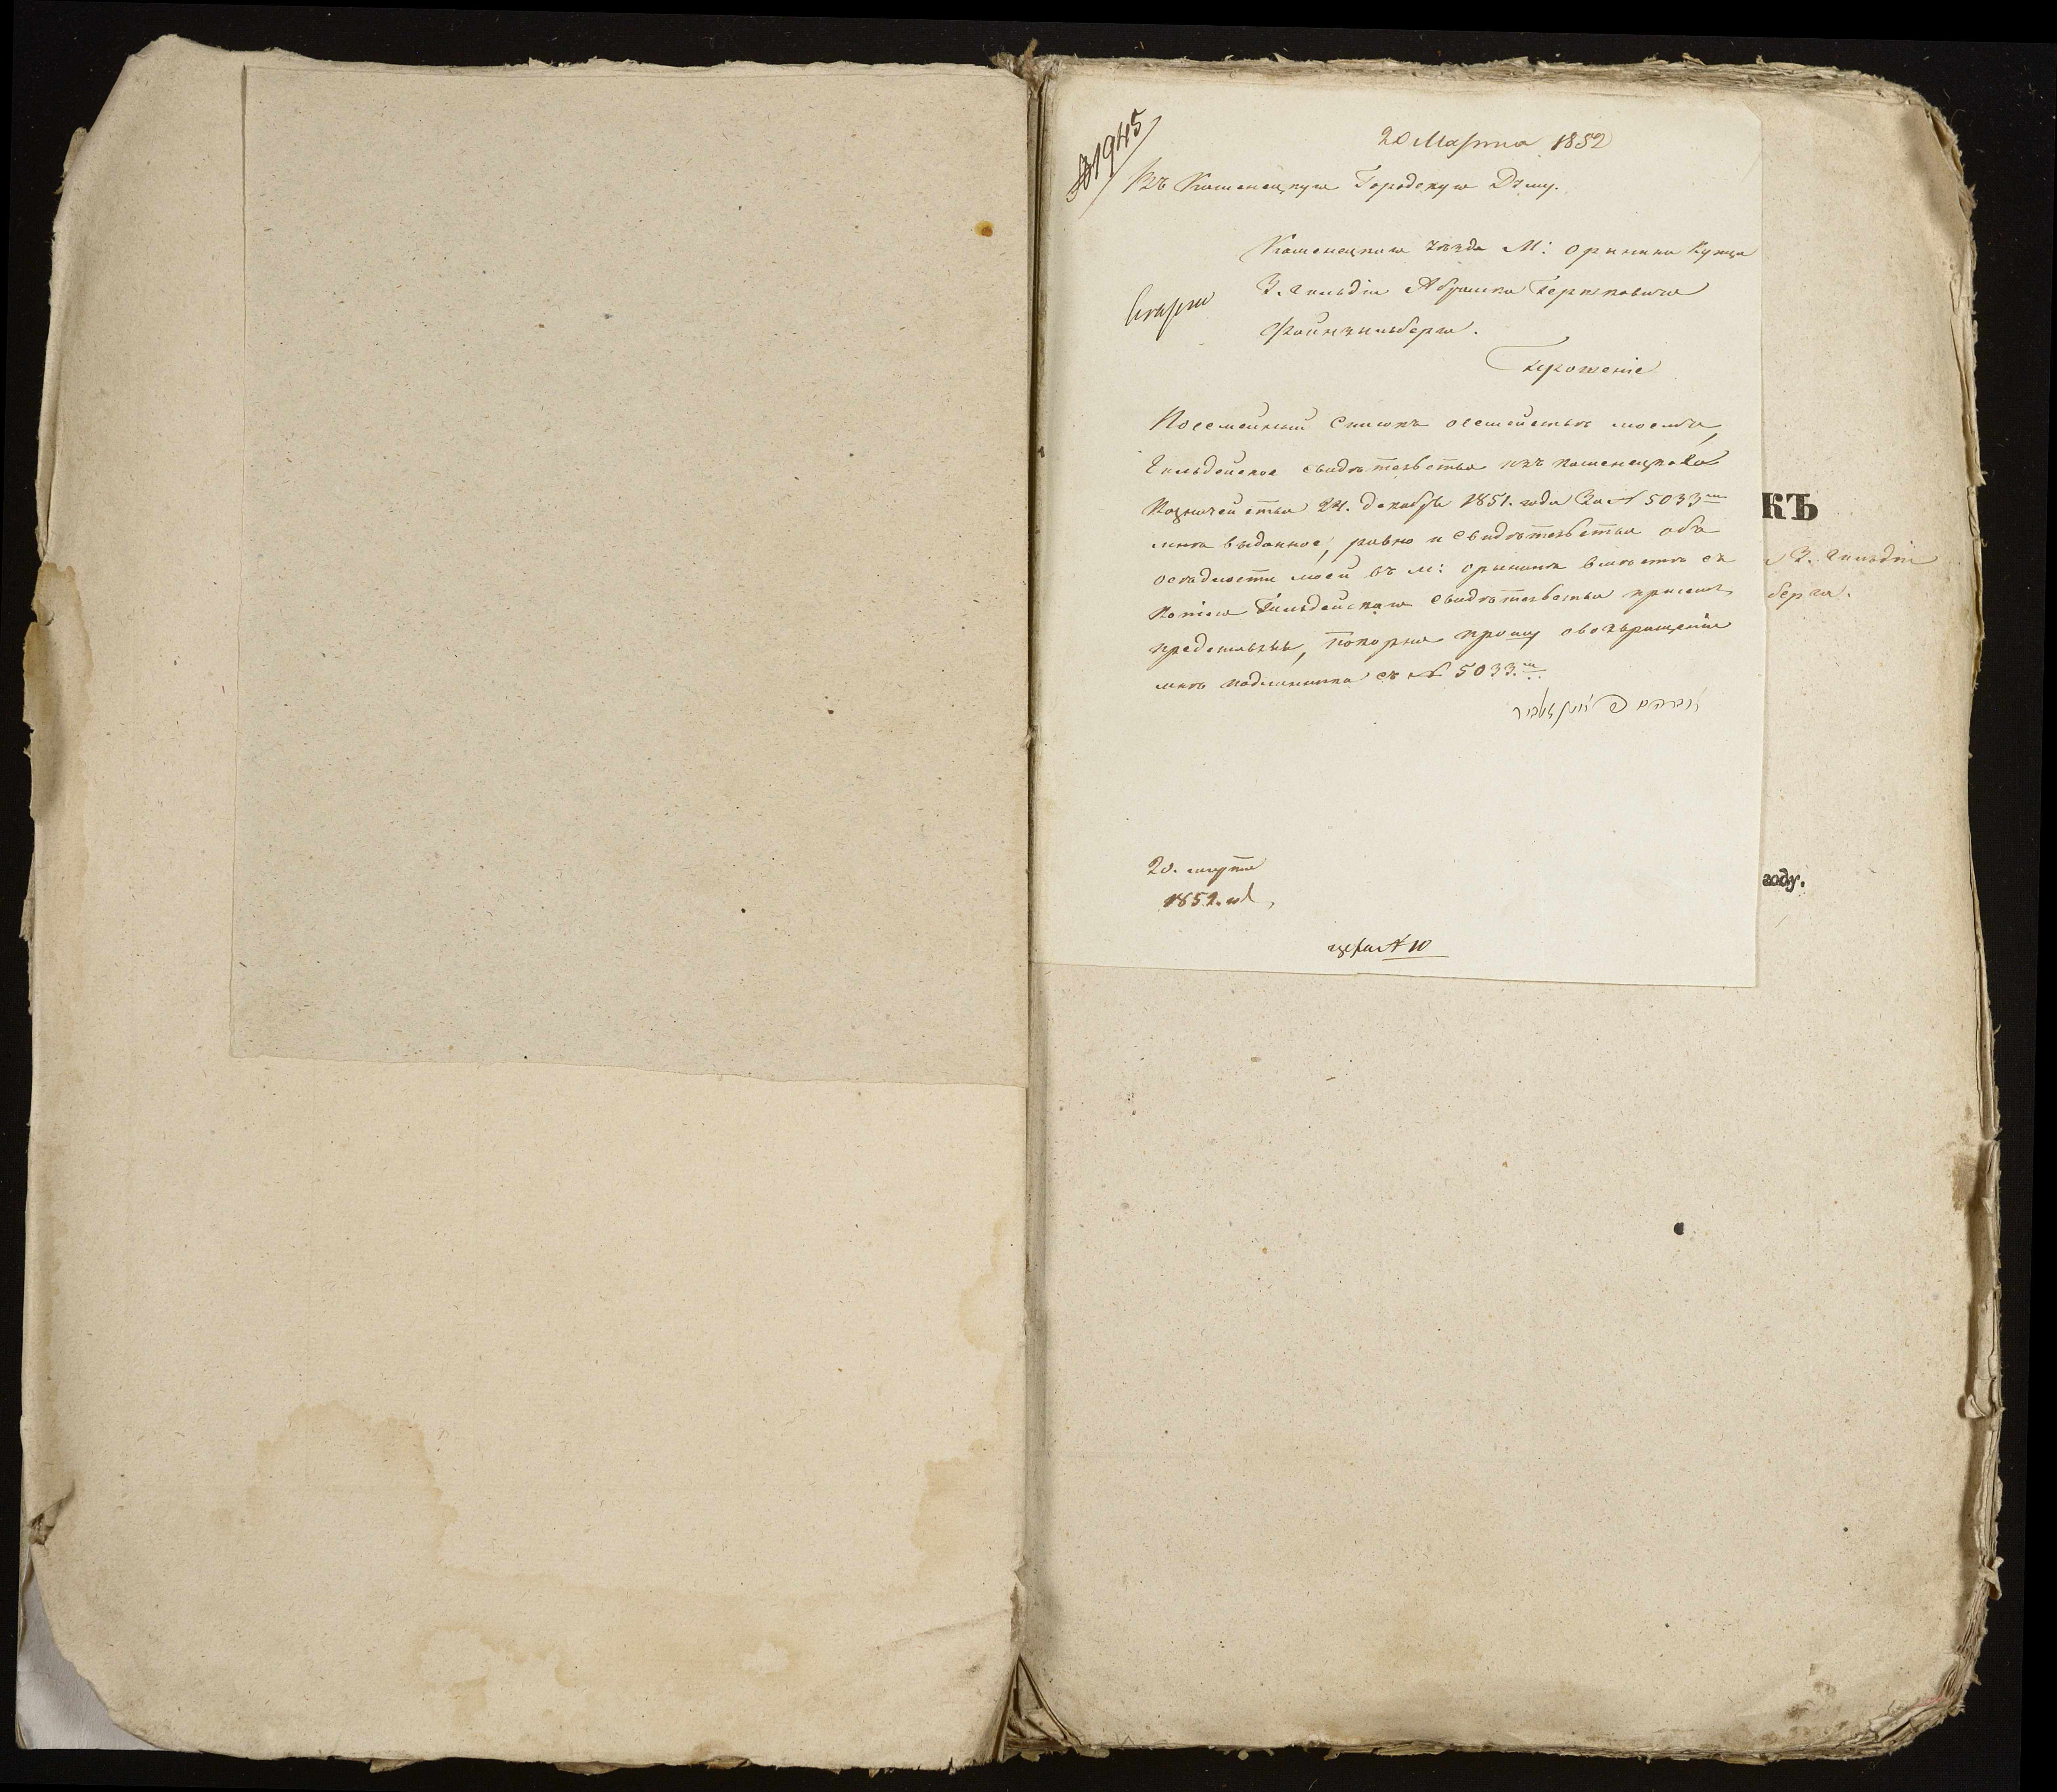 1945
20 Марта 1852
Въ Каменецкую Городскую Думу.
Каменецкаго уѣзда М: оринина Купца
3. гильдіи Абрамка Берковича
Файнзильберга.
Прошеніе
Посемейный Списокъ о семействѣ моемъ,
Гильдейское свидѣтельство изъ каменецкаго
Казначейства 24. декабря 1851. года За № 5033
мнѣ выданное, равно и свидѣтельство объ
осѣдлости моей въ м: орынинѣ вмѣстѣ съ
Копіею Гильдейскаго свидѣтельства при семъ
представляя, покорно прошу о возвращеніи
мнѣ подлинника съ № 5033.
אברהם
20. марта
1852. год
№ 10
КЪ
3. гильдіи
берга.
году.